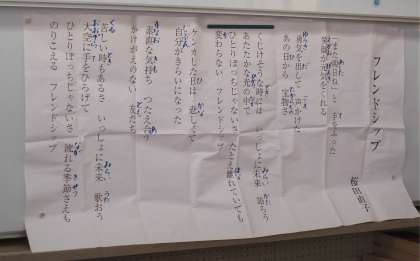 フレンドシップ
桜田直子
「また明日ね」と 手をふった
笑顔が勇気をくれる
勇気を出して 声かけた
あの日から 宝物さ
くじけそうな時には いっしょに未来 語ろう
あたたかな光の中で
ひとりぼっちじゃないさ たとえ離れていても
変わらない フレンドシップ
ケンカした日は 悲しくて
自分がきらいになった
素直な気持ち つたえ合う
かけがえのない 友だち
苦しい時もあるさ いっしょに未来 歌おう
大空に手をひろげて
ひとりぼっちじゃないさ 流れる季節さえも
のりこえる フレンドシップ